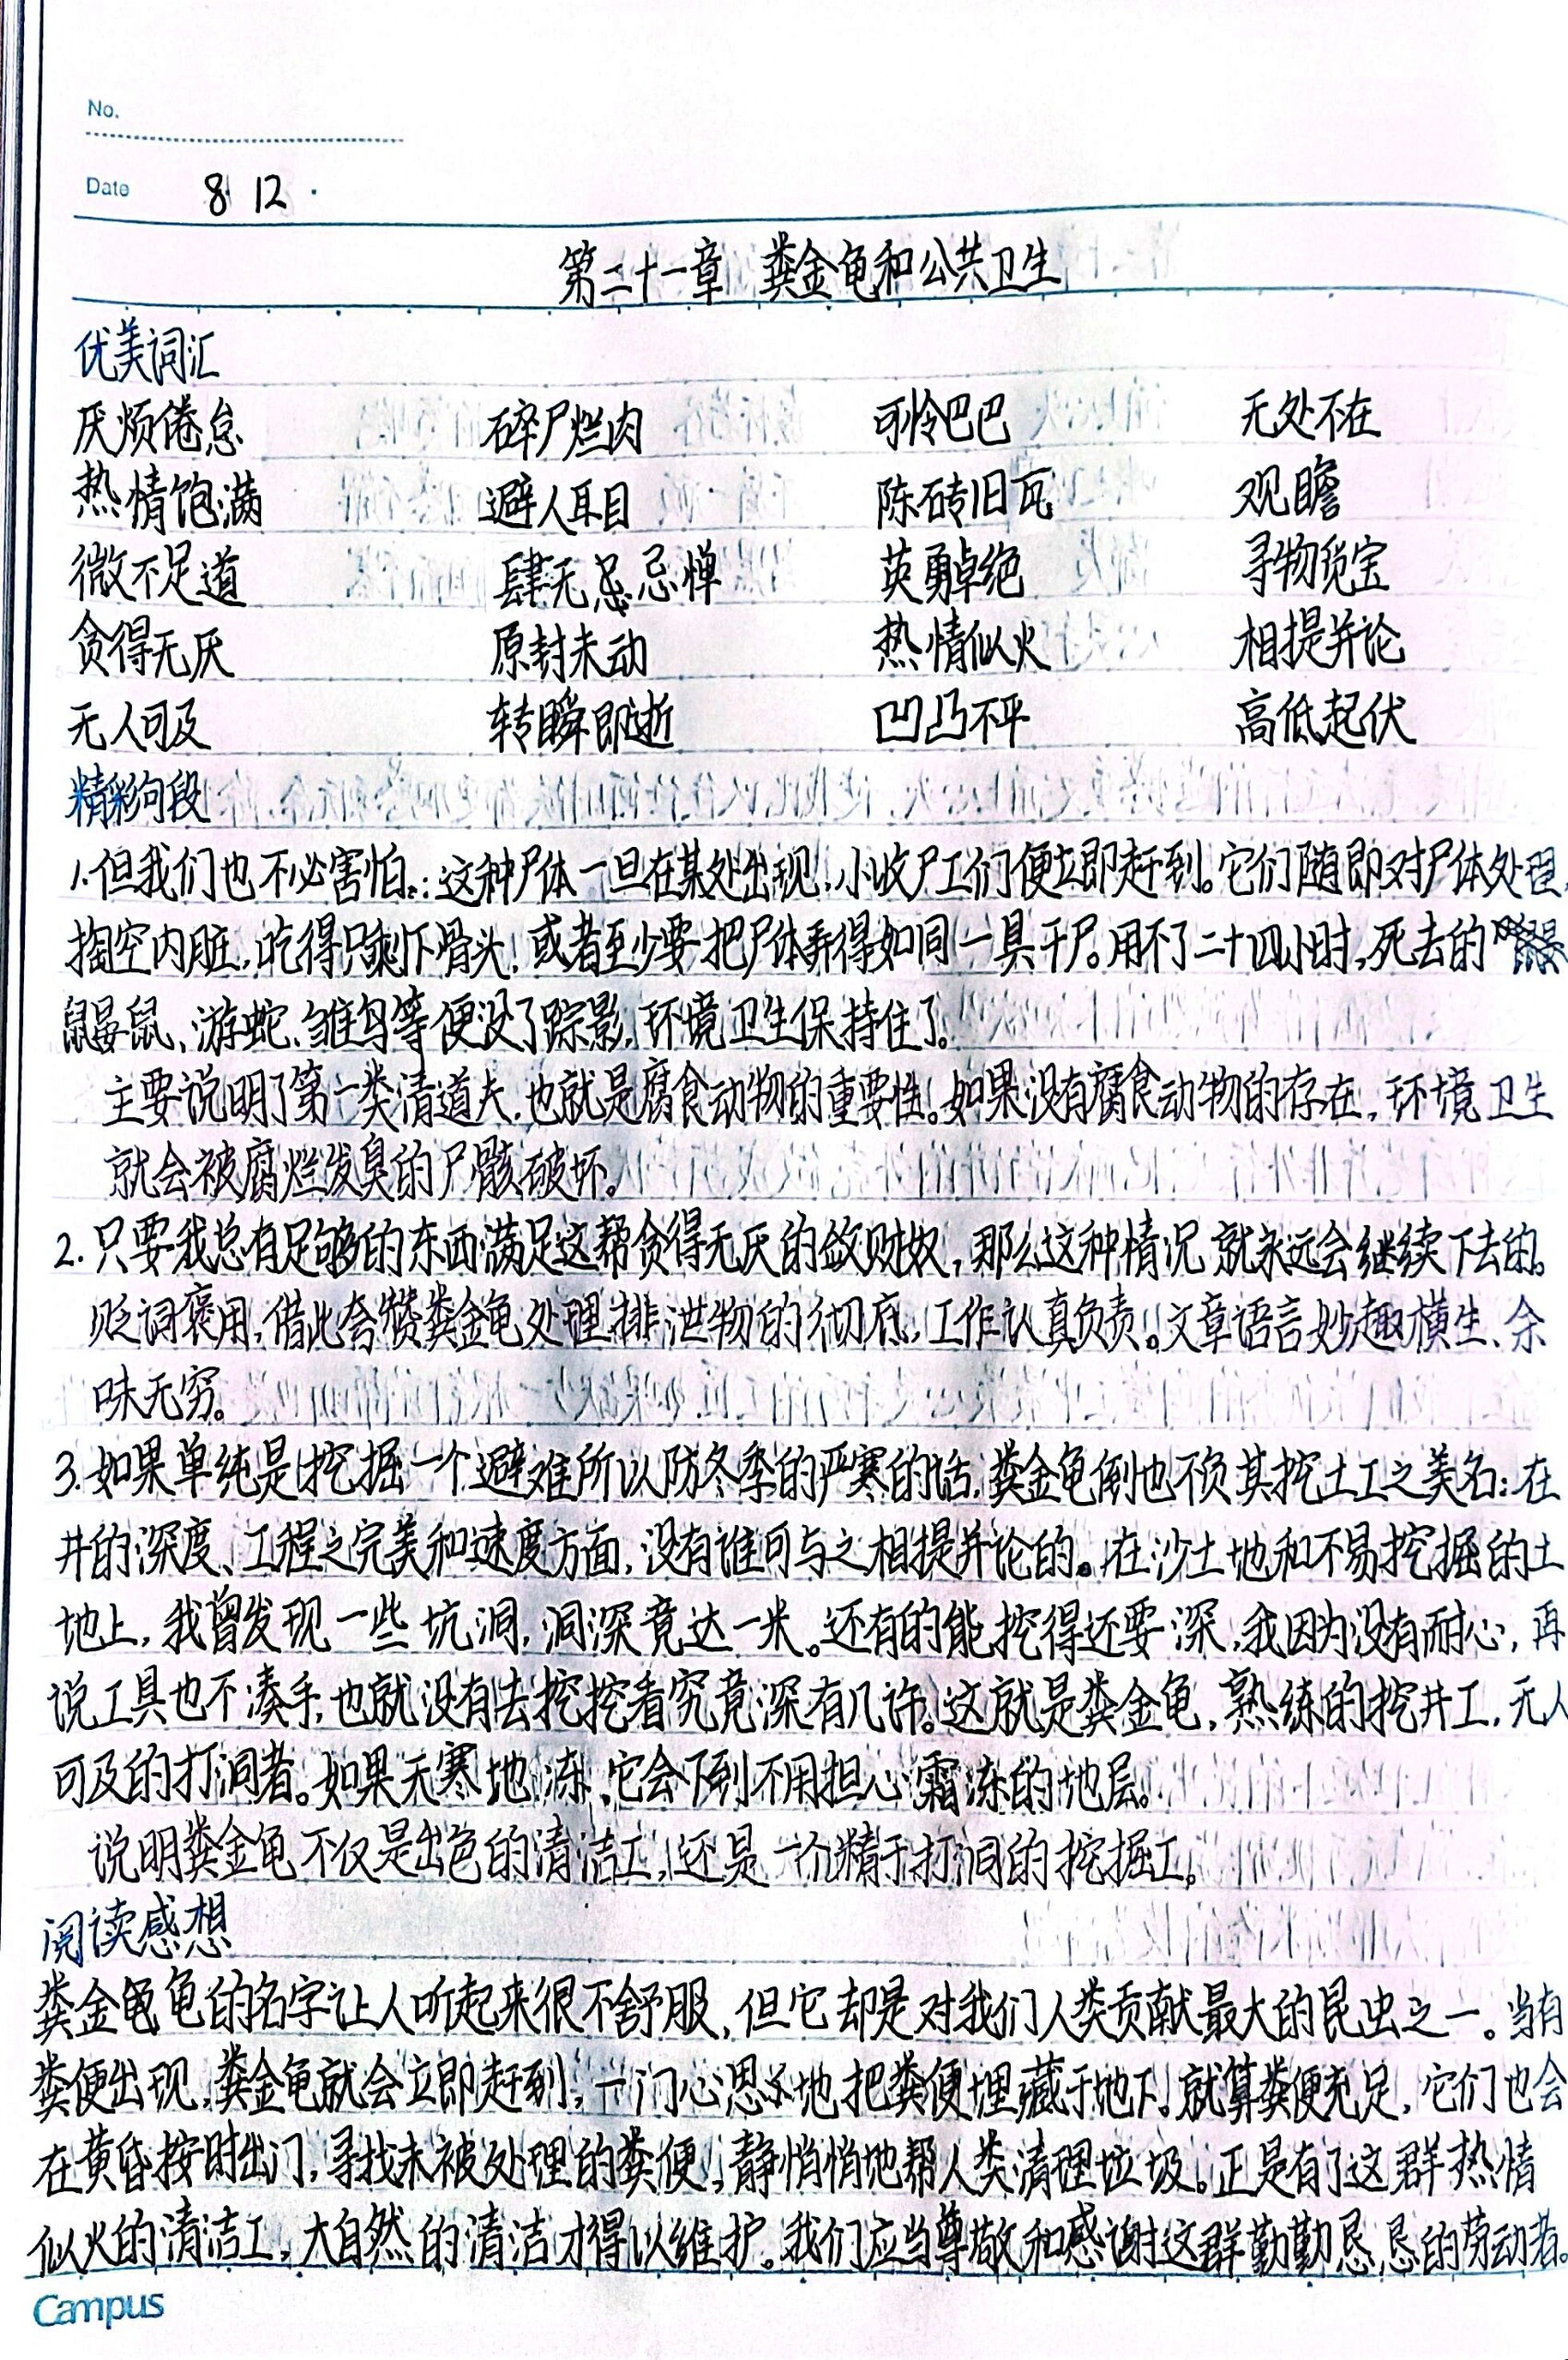 No.
Date 8 12 .
第二十一章 粪金龟和公共卫生
优美词汇
厌烦倦怠 碎尸烂肉 可怜巴巴 无处不在
热情饱满 避人耳目 陈砖旧瓦 观瞻
微不足道 肆无忌忌惮 英勇卓绝 寻物觅宝
贪得无厌 原封未动 热情似火 相提并论
无人可及 转瞬即逝 凹凸不平 高低起伏
精彩句段
1.但我们也不必害怕:这种尸体一旦在某处出现,小收尸工们便立即赶到。它们随即对尸体处理,
掏空内脏,吃得只剩下骨头,或者至少要把尸体弄得如同一具干尸。用不了二十四小时,死去的
鼹鼠、游蛇、雏鸟等便没了踪影,环境卫生保持住了。
主要说明了第一类清道夫,也就是腐食动物的重要性。如果没有腐食动物的存在,环境卫生
就会被腐烂发臭的尸骸破坏。
2.只要我总有足够的东西满足这帮贪得无厌的敛财奴,那么这种情况就永远会继续下去的。
贬词褒用,借此夸赞粪金龟处理排泄物的彻底,工作认真负责。文章语言妙趣横生、余
味无穷。
3.如果单纯是挖掘一个避难所以防冬季的严寒的话,粪金龟倒也不负其挖土工之美名:在
井的深度、工程之完美和速度方面,没有谁可与之相提并论的。在沙土地和不易挖掘的土
地上,我曾发现一些坑洞,洞深竟达一米。还有的能挖得还要深,我因为没有耐心,再
说工具也不凑手,也就没有去挖挖看究竟深有几许。这就是粪金龟,熟练的挖井工,无人
可及的打洞者。如果天寒地冻,它会下到不用担心霜冻的地层。
说明粪金龟不仅是出色的清洁工,还是一个精于打洞的挖掘工。
阅读感想
粪金龟龟的名字让人听起来很不舒服,但它却是对我们人类贡献最大的昆虫之一。当有
粪便出现,粪金龟就会立即赶到,一门心思地把粪便埋藏于地下。就算粪便充足,它们也会
在黄昏按时出门,寻找未被处理的粪便,静悄悄地帮人类清理垃圾。正是有了这群热情
似火的清洁工,大自然的清洁才得以维护。我们应当尊敬和感谢这群勤勤恳恳的劳动者。
Campus